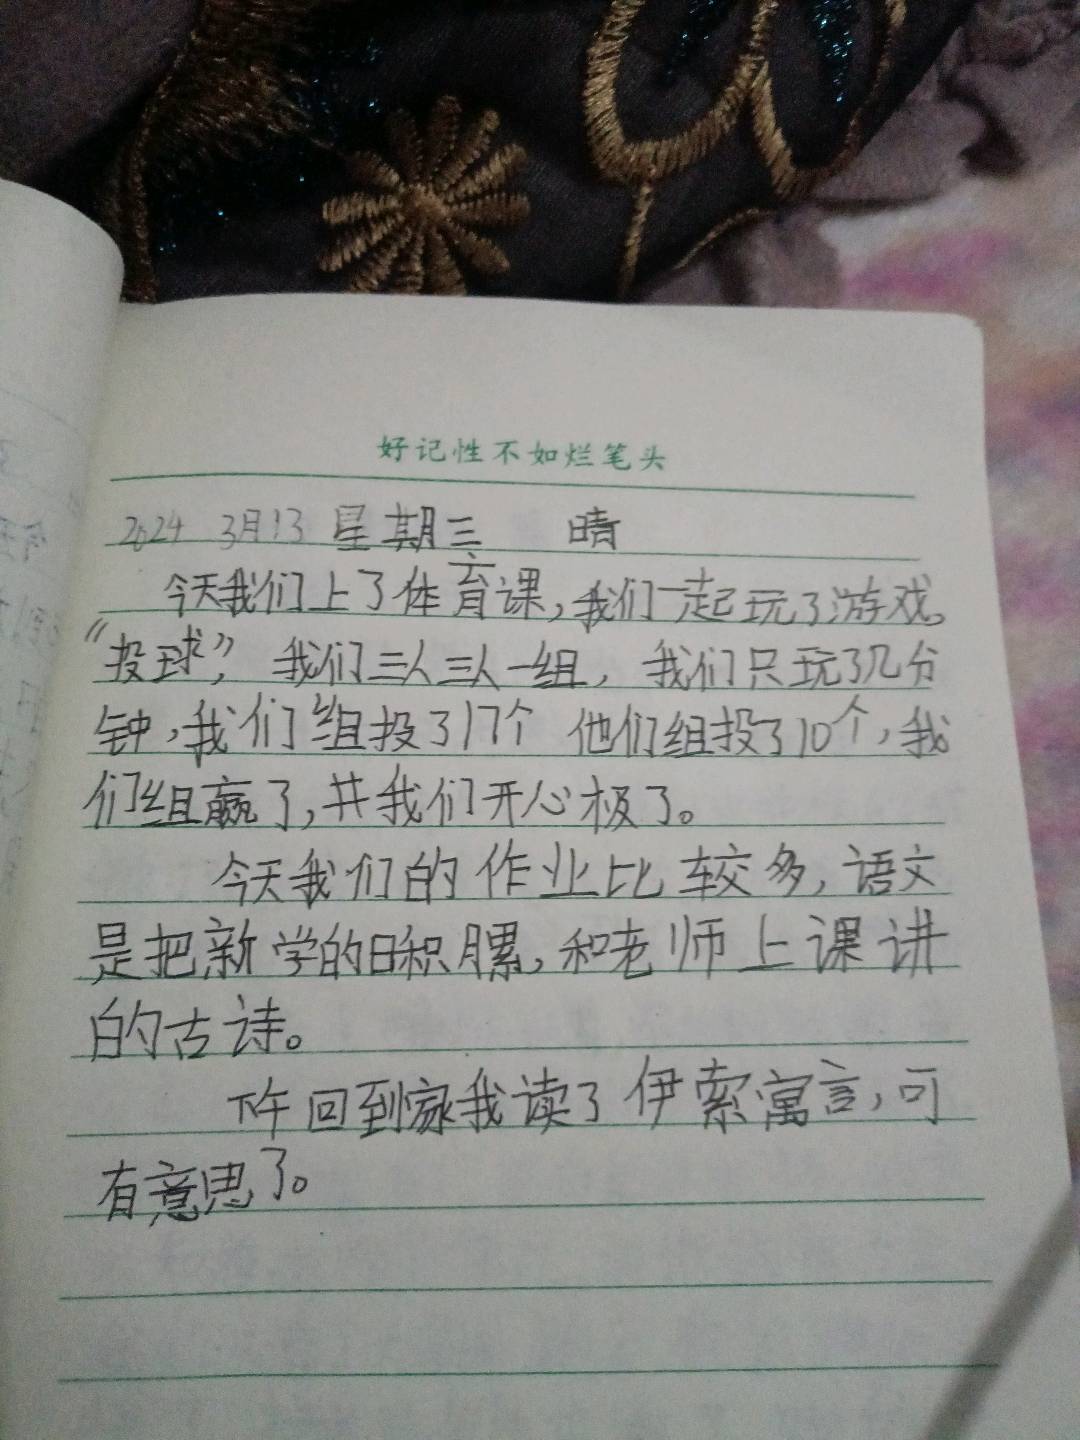 好记性不如烂笔头
2024 3月13 星期三 晴
今天我们上了体育课,我们一起玩了游戏。
“投球”,我们三人三人一组,我们只玩了几分
钟,我们组投了17个 他们组投了10个,我
们组赢了,我们开心极了。
今天我们的作业比较多,语文
是把新学的日积月累,和老师上课讲
的古诗。
下午回到家我读了伊索寓言,可
有意思了。